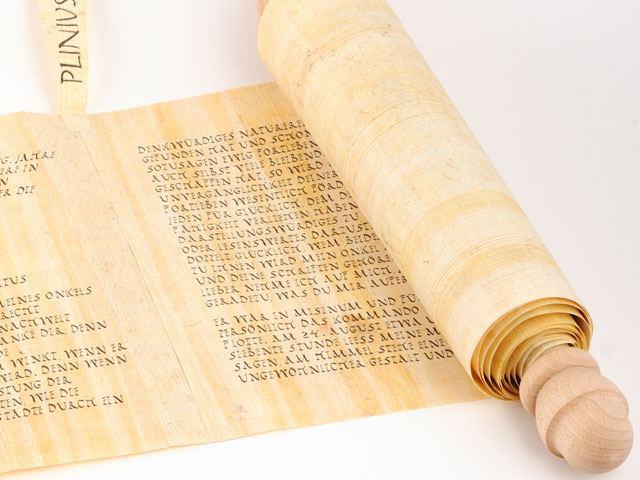 PLINIUS
G. JAHRE
ERE IN
N
ER DIE
TUS
MEINES ONKELS
RICHT
NACHWELT
ANKE DIR, DENN
WINKT, WENN ER
WIRD. DENN WENN
STUNG DER
TEN, WIE DIE
STÄDTE DURCH EIN
DENKWÜRDIGES NATUREREI
GEFUNDEN HAT UND SCHON
SOZUSAGEN EWIG FORTLEBEN
AUCH SELBST VIEL BLEIBEND
GESCHAFFEN, SO WIRD
UNVERGÄNGLICHKEIT DEINER
FORTLEBEN WESENTLICH FÖRD
JEDEN FÜR GLÜCKLICH, DEM DI
FÄHIGKEIT VERLIEHEN HABEN
DARSTELLUNGSWÜRDIGES
ODER LESENSWERTES DARZUSTE
DOPPELT GLÜCKLICH, WEM BEIDE
ZU IHNEN WIRD MEIN ONKEL
UND DEINE SCHRIFTEN GEHÖRE
LIEBER NEHME ICH AUF MICH,
GERADEZU, WAS DU MIR AUFER
ER WAR IN MISENUM UND FÜ
PERSÖNLICH DAS KOMMANDO
FLOTTE. AM 24. AUGUST ETWA UM
SIEBENTE STUNDE LIESS MEINE M
SAGEN, AM HIMMEL STEHE EINE
UNGEWÖHNLICHER GESTALT UND